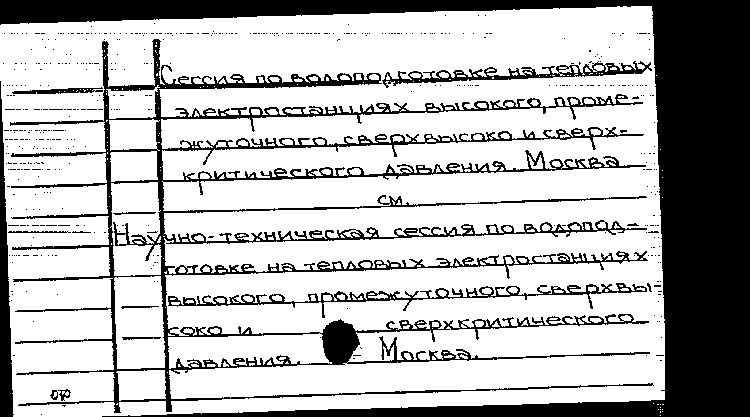 Сессия по водоподготовке на тепловых
электростанциях высокого, проме-
жуточного, сверхвысоко и сверх-
критического давления. Москва
см.
Научно-техническая сессия по водопод-
готовке на тепловых электростанциях
высокого, промежуточного, сверхвы-
соко и сверхкритического
давления. Москва.